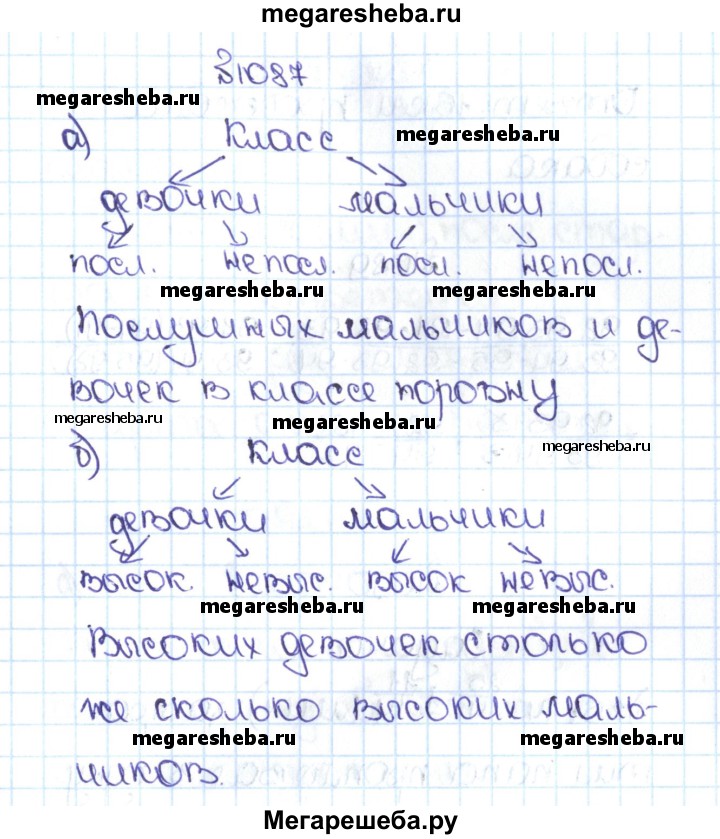 megaresheba.ru
№1087
megaresheba.ru
а) Класс megaresheba.ru
девочки мальчики
посл. непосл. посл. непосл.
megaresheba.ru megaresheba.ru
Послушных мальчиков и де-
вочек в классе поровну
megaresheba.ru megaresheba.ru megaresheba.ru
б) Класс
девочки мальчики
высок. невыс. высок невыс.
megaresheba.ru megaresheba.ru
Высоких девочек столько
же сколько высоких маль-
megaresheba.ru megaresheba.ru
чиков.
Мегарешеба.ру